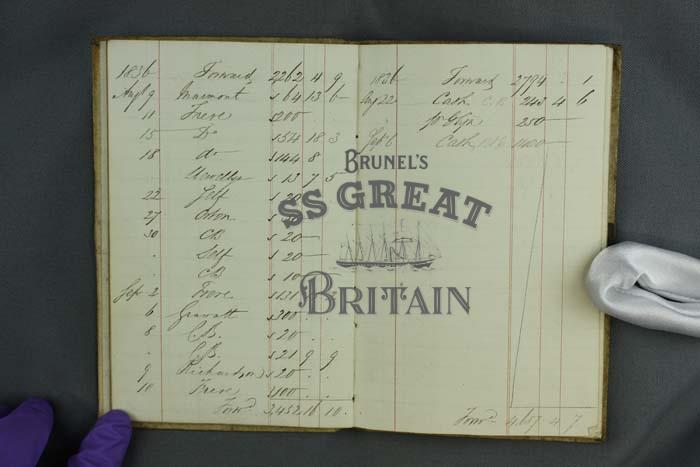 1836 Forward 2262 4 9
Augt 9 Marmont 64 13 6
11 Frere 200
15 Do 154 18 3
18 do 144 8
Llewellyn 13 7 5
22 Self 20
27
30 CB 20
. Self 20
. CB 10
Sep 2 Frere 131 . .
6 Gravatt 300 . .
8 C.B. 20 . .
. C.B. 21 9 9
9 Richardson 20 . .
10 Frere 100 . .
Forwd 3,452 16 10
1836 Forward 2794 . 1
Aug 22 Cash 243 4 6
250
Sept 6 Cash
Forwd 4,617 4 7
BRUNEL'S
SS GREAT
BRITAIN